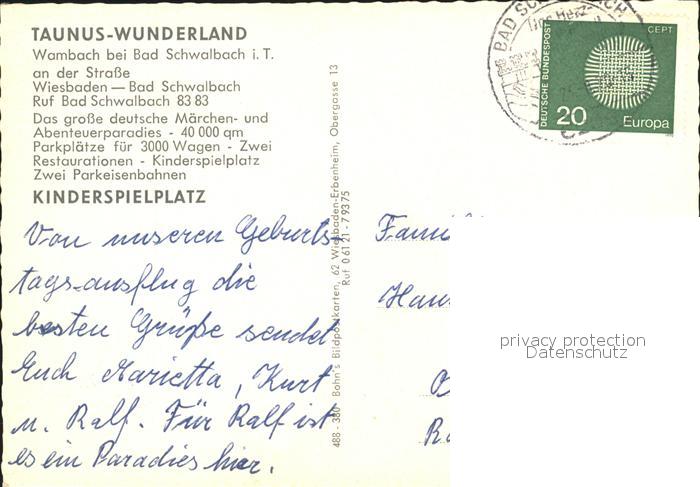 TAUNUS-WUNDERLAND
Wambach bei Bad Schwalbach i. T.
an der Straße
Wiesbaden — Bad Schwalbach
Ruf Bad Schwalbach 83 83
Das große deutsche Märchen- und
Abenteuerparadies - 40 000 qm
Parkplätze für 3000 Wagen - Zwei
Restaurationen - Kinderspielplatz
Zwei Parkeisenbahnen
KINDERSPIELPLATZ
Von unseren Geburts-
tags-ausflug die
besten Grüße sendet
Euch Marietta, Kurt
u. Ralf. Für Ralf ist
es ein Paradies hier.
488 - 380 Bohn's Bildpostkarten, 62 Wiesbaden-Erbenheim, Obergasse 13
Ruf 0 61 21 - 7 93 75
BAD
DEUTSCHE BUNDESPOST
CEPT
20
Europa
Fami
Hans
privacy protection
Datenschutz